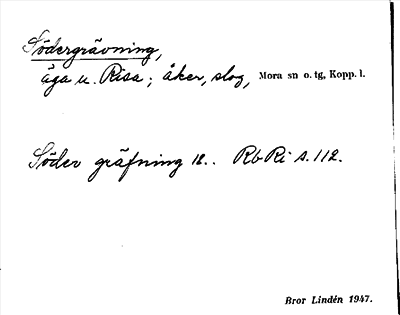 Södergrävning,
äga u. Risa; åker, slog, Mora sn o. tg, Kopp. l.
Söder gräfning 12.. Rb Ri s. 112.
Bror Lindén 1947.